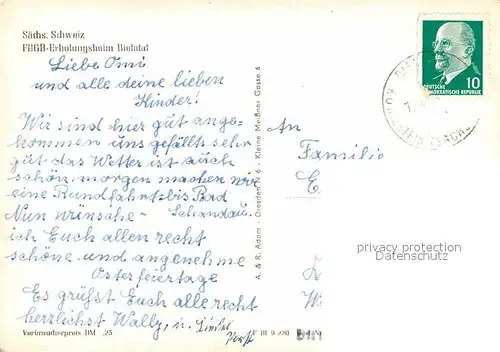 Sächs. Schweiz
FDGB-Erholungsheim Bielatal
Liebe Omi
und alle deine lieben
Kinder!
Wir sind hier gut ange-
kommen uns gefällts sehr
gut das Wetter ist auch
schön. morgen machen wir
eine Rundfahrt bis Bad
Schandau.
Nun wünsche
ich Euch allen recht
schöne und angenehme
Osterfeiertage
Es grüßt Euch alle recht
herzlichst Wally, u.
Verbraucherpreis DM -,25
A. & R. Adam - Dresden A 6 - Kleine Meißner Gasse 5
10
DEUTSCHE
DEMOKRATISCHE REPUBLIK
An
Familie
E
privacy protection
Datenschutz